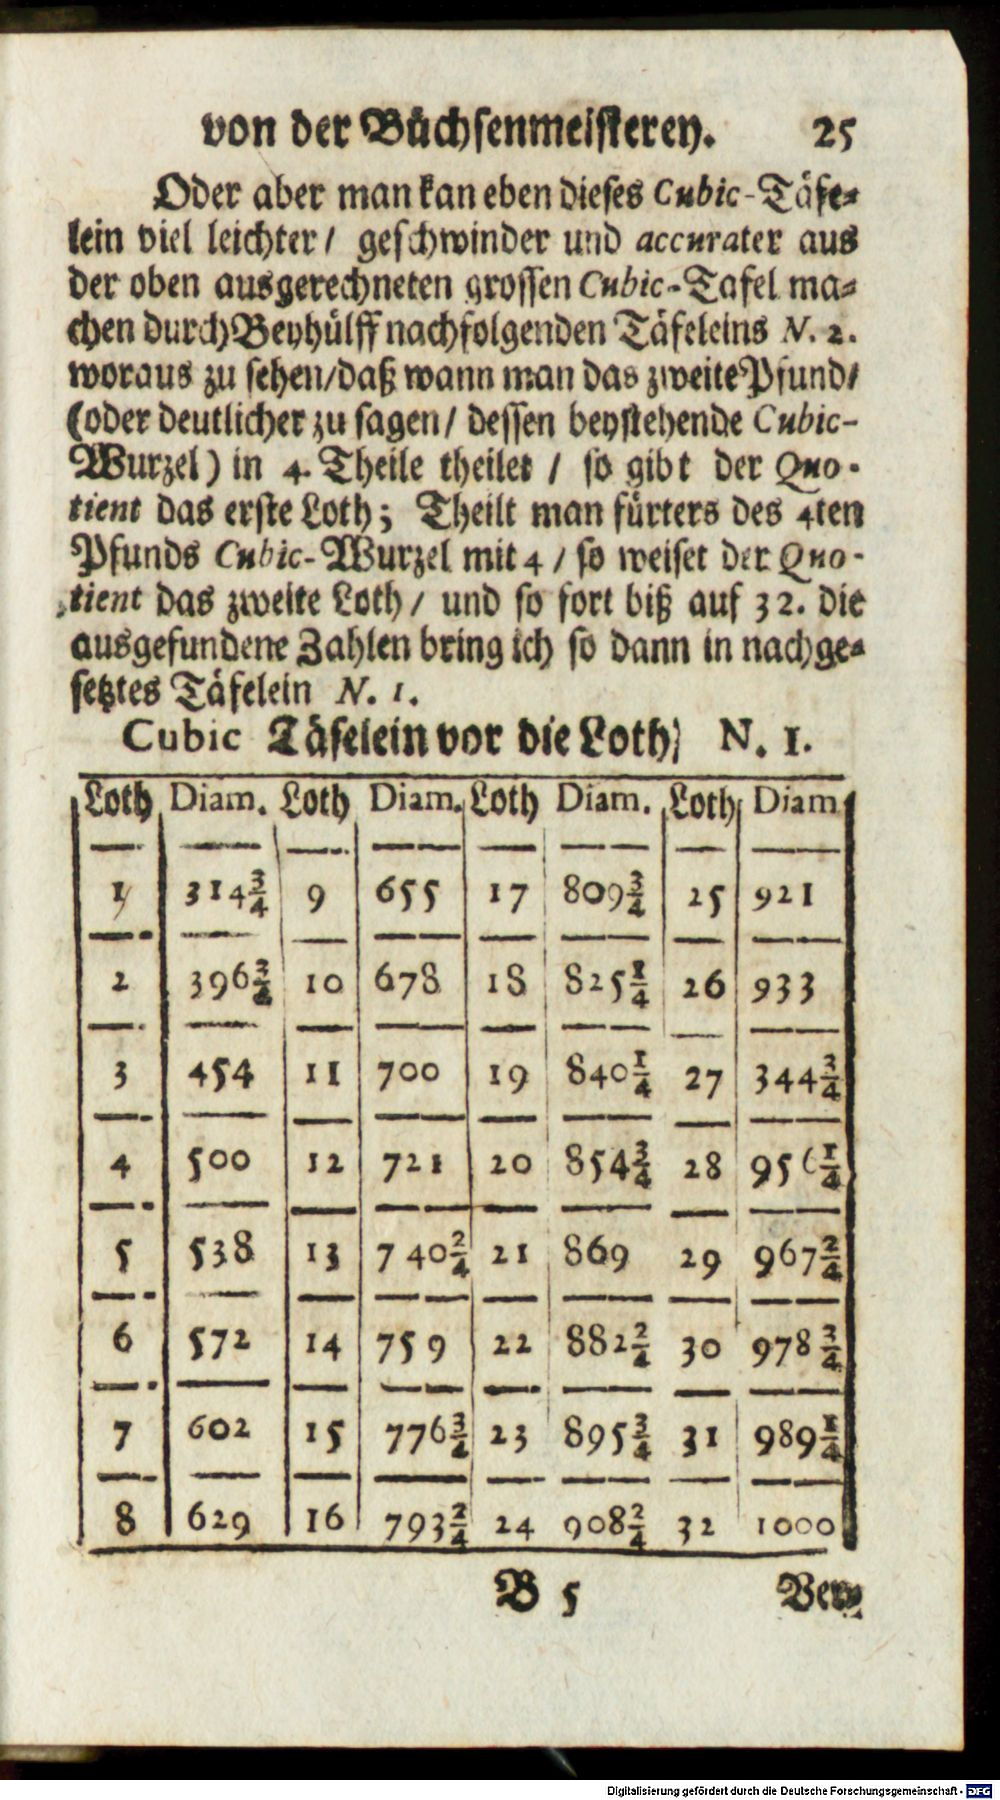 von der Büchsenmeisterey. 25
Oder aber man kan eben dieses Cubic-Täfe-
lein viel leichter/ geschwinder und accurater aus
der oben ausgerechneten grossen Cubic-Tafel ma-
chen durch Beyhülff nachfolgenden Täfeleins N. 2.
woraus zu sehen/daß wann man das zweite Pfund/
(oder deutlicher zu sagen/ dessen beystehende Cubic-
Wurzel) in 4. Theile theilet / so gibt der Quo-
tient das erste Loth; Theilt man fürters des 4ten
Pfunds Cubic-Wurzel mit 4 / so weiset der Quo-
tient das zweite Loth/ und so fort biß auf 32. die
ausgefundene Zahlen bring ich so dann in nachge-
setztes Täfelein N. 1.
Cubic Täfelein vor die Loth; N. 1.
Loth Diam. Loth Diam. Loth Diam. Loth Diam
1 314¾ 9 655 17 809¾ 25 921
2 396¾ 10 678 18 825¼ 26 933
3 454 11 700 19 840¼ 27 344¾
4 500 12 721 20 854¾ 28 956¼
5 538 13 740 2/4 21 869 29 967 2/4
6 572 14 759 22 882 2/4 30 978¾
7 602 15 776¾ 23 895¾ 31 989¼
8 629 16 793 2/4 24 908 2/4 32 1000
B 5 Ver-
Digitalisierung gefördert durch die Deutsche Forschungsgemeinschaft - DFG